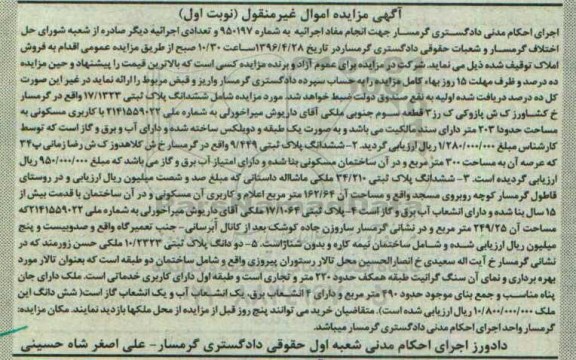 آگهی مزایده اموال غیرمنقول (نوبت اول)
اجرای احکام مدنی دادگستری گرمسار جهت انجام مفاد اجرائیه به شماره ۹۵۰۱۹۷ و تعدادی اجرائیه دیگر صادره از شعبه شورای حل
اختلاف گرمسار و شعبات حقوقی دادگستری گرمسار در تاریخ ۱۳۹۶/۴/۲۸ ساعت ۱۰/۳۰ صبح از طریق مزایده عمومی اقدام به فروش
املاک توقیف شده ذیل می نماید. شرکت در مزایده برای عموم آزاد و برنده مزایده کسی است که بالاترین قیمت را پیشنهاد و حین مزایده
ده درصد و ظرف مهلت ۱۵ روز بهاء کامل مزایده را به حساب سپرده دادگستری گرمسار واریز و قبض مربوط را ارائه نماید در غیر این صورت
کل ده درصد دریافت شده اولیه به نفع صندوق دولت ضبط خواهد شد. مورد مزایده شامل ششدانگ پلاک ثبتی ۱۷/۱۳۲۳ واقع در گرمسار
خ کشاورز ک ش پازوکی ک رز۳ قطعه سوم جنوبی ملکی آقای داریوش میراخورلی به شماره ملی ۲۱۴۱۵۵۹۰۲۲ با کاربری مسکونی به
مساحت حدودا ۲۰۳ متر دارای سند مالکیت می باشد و به صورت یک طبقه و دوبلکس ساخته شده و دارای آب و برق و گاز است که توسط
کارشناس مبلغ ۱/۲۸۰/۰۰۰/۰۰۰ ریال ارزیابی گردید. ۲- ششدانگ پلاک ثبتی ۹/۴۴۹ واقع در گرمسار خ ش کلاهدوز ک ش رضا زمانی پ۳۴
که عرصه آن به مساحت ۳۰۰ متر مربع و در آن ساختمان مسکونی بنا شده و دارای امتیاز آب برق و گاز می باشد که مبلغ ۹۵۰/۰۰۰/۰۰۰ ریال
ارزیابی گردیده است. ۳- ششدانگ پلاک ثبتی ۳۴/۲۱۰ ملکی ماشااله داستانی که مبلغ صد و شصت میلیون ریال ارزیابی و در روستای
قاطول گرمسار کوچه روبروی مسجد واقع و مساحت آن ۱۶۲/۶۴ متر مربع اعلام و کاربری آن مسکونی و در آن ساختمان با قدمت بیش از
۱۵ سال بنا شده و دارای انشعاب آب برق و گاز است ۴- پلاک ثبتی ۱۷/۱۰۶۴ ملکی آقای داریوش میراخورلی به شماره ملی ۲۱۴۱۵۵۹۰۲۲ که
مساحت آن ۲۴۹/۲۵ متر مربع و در نشانی گرمسار ساروزن جاده کوشک بعد از کانال آبرسانی- جنب تعمیرگاه واقع و صدوبیست و پنج
میلیون ریال ارزیابی شده و شامل ساختمان نیمه کاره و بدون شناژاست. ۵- دو دانگ پلاک ثبتی ۱۰/۲۳۲۳ ملکی حسن زورمند که در
نشانی گرمسار خ آیت اله سعیدی خ انصارالحسین محل تالار رستوران پیروزی واقع و شامل ساختمان دو طبقه است که بعنوان تالار مورد
بهره برداری و نمای آن سنگ گرانیت طبقه همکف حدود ۲۲۰ متر و تجاری است و طبقه اول دارای کاربری خدماتی است. ملک دارای جان
پناه مناسب و جمع بنای موجود حدود ۴۹۰ متر مربع و دارای ۴ انشعاب برق، یک انشعاب آب و یک انشعاب گاز است( شش دانگ این
ملک ۱۰/۸۰۰/۰۰۰/۰۰۰ ریال ارزیابی شده است). متقاضیان خرید می توانند پنج روز قبل از مزایده از محل ملکها بازدید نمایند. مکان مزایده:
گرمسار واحد اجرای احکام مدنی دادگستری گرمسار میباشد.
دادورز اجرای احکام مدنی شعبه اول حقوقی دادگستری گرمسار- علی اصغر شاه حسینی